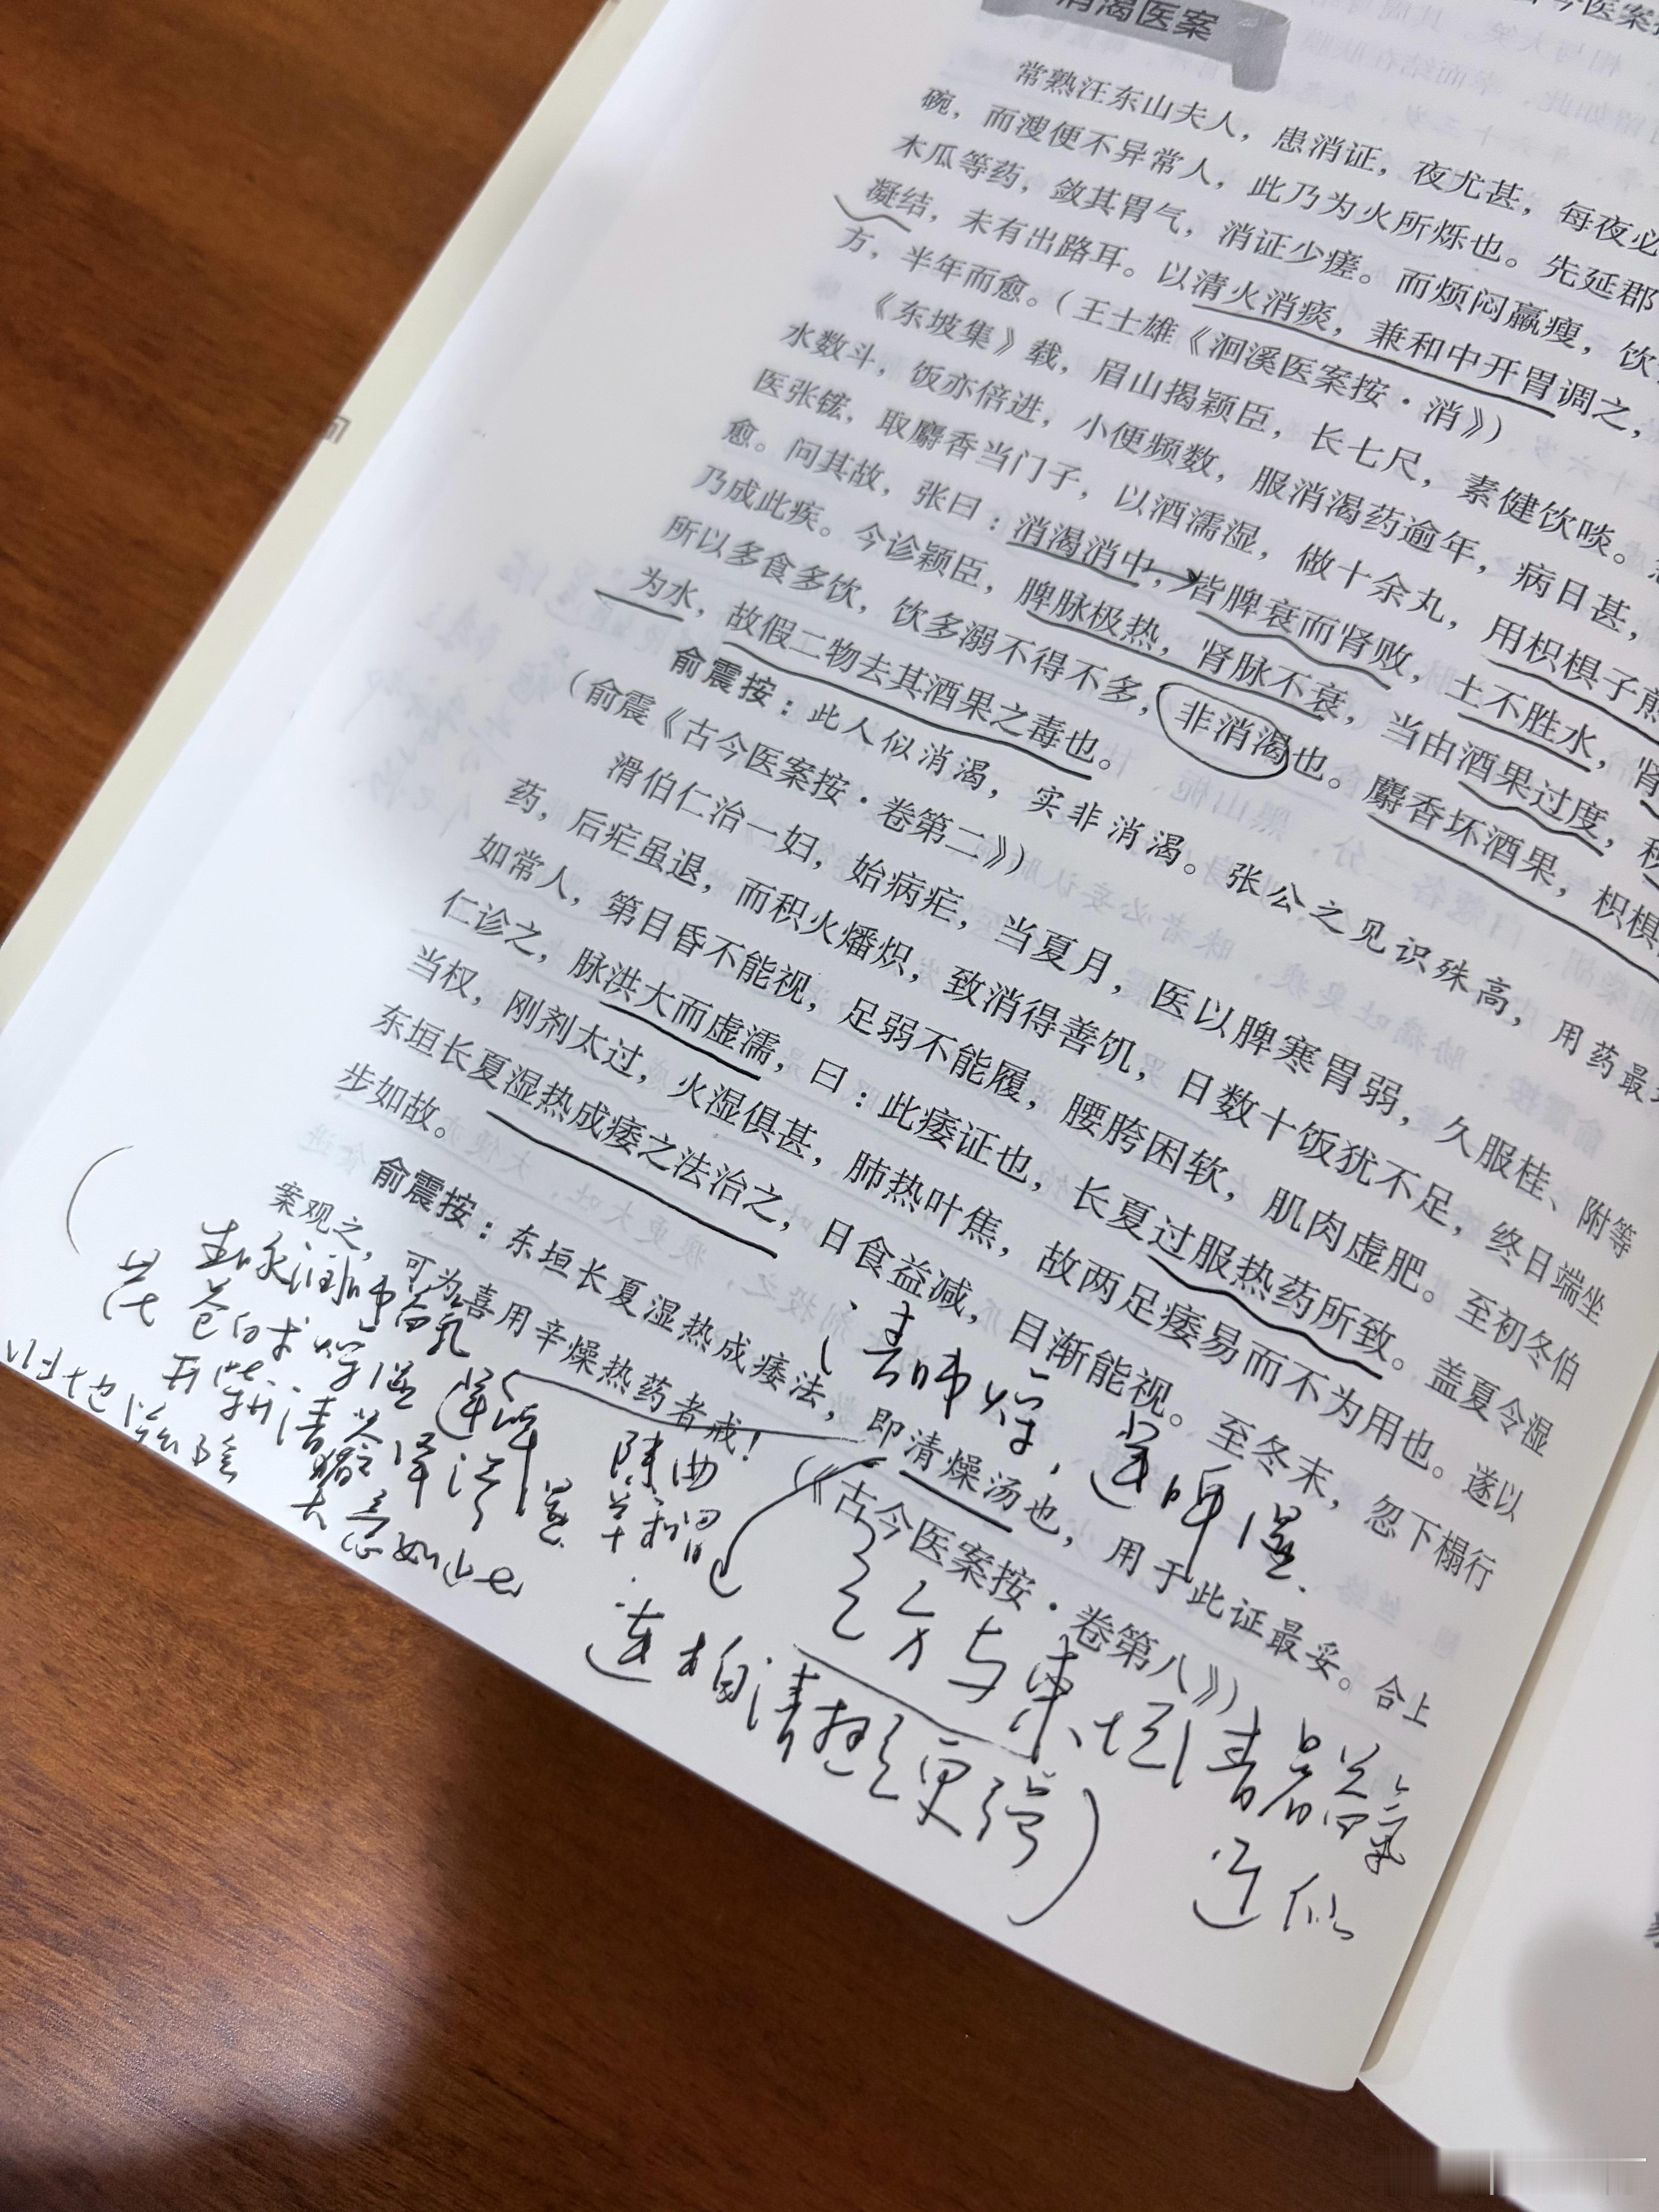 消渴医案
常熟汪东山夫人，患消证，夜尤甚，每夜必
碗，而溲便不异常人，此乃为火所烁也。先延郡
木瓜等药，敛其胃气，消证少瘥。而烦闷羸瘦，饮
凝结，未有出路耳。以清火消痰，兼和中开胃调之，
方，半年而愈。（王士雄《洄溪医案按·消》）
《东坡集》载，眉山揭颖臣，长七尺，素健饮啖。
水数斗，饭亦倍进，小便频数，服消渴药逾年，病日甚，
医张铉，取麝香当门子，以酒濡湿，做十余丸，用枳椇子煎
愈。问其故，张曰：消渴消中，皆脾衰而肾败，土不胜水，肾
乃成此疾。今诊颖臣，脾脉极热，肾脉不衰，当由酒果过度，
所以多食多饮，饮多溺不得不多，非消渴也。麝香坏酒果，枳椇
为水，故假二物去其酒果之毒也。
俞震按：此人似消渴，实非消渴。张公之见识殊高，用药最
（俞震《古今医案按·卷第二》）
滑伯仁治一妇，始病疟，当夏月，医以脾寒胃弱，久服桂、附等
药，后疟虽退，而积火燔炽，致消得善饥，日数十饭犹不足，终日端坐
如常人，第目昏不能视，足弱不能履，腰胯困软，肌肉虚肥。至初冬伯
仁诊之，脉洪大而虚濡，曰：此痿证也，长夏过服热药所致。盖夏令湿
当权，刚剂太过，火湿俱甚，肺热叶焦，故两足痿易而不为用也。遂以
东垣长夏湿热成痿之法治之，日食益减，目渐能视。至冬末，忽下榻行
步如故。
俞震按：东垣长夏湿热成痿法，即清燥汤也，用于此证最妥。合上
案观之，可为喜用辛燥热药者戒！（《古今医案按·卷第八》）
清肺燥，运脾湿.
苍白术燥湿
陈曲
大意如此
与東垣清暑益氣
近似
连柏清热更强）